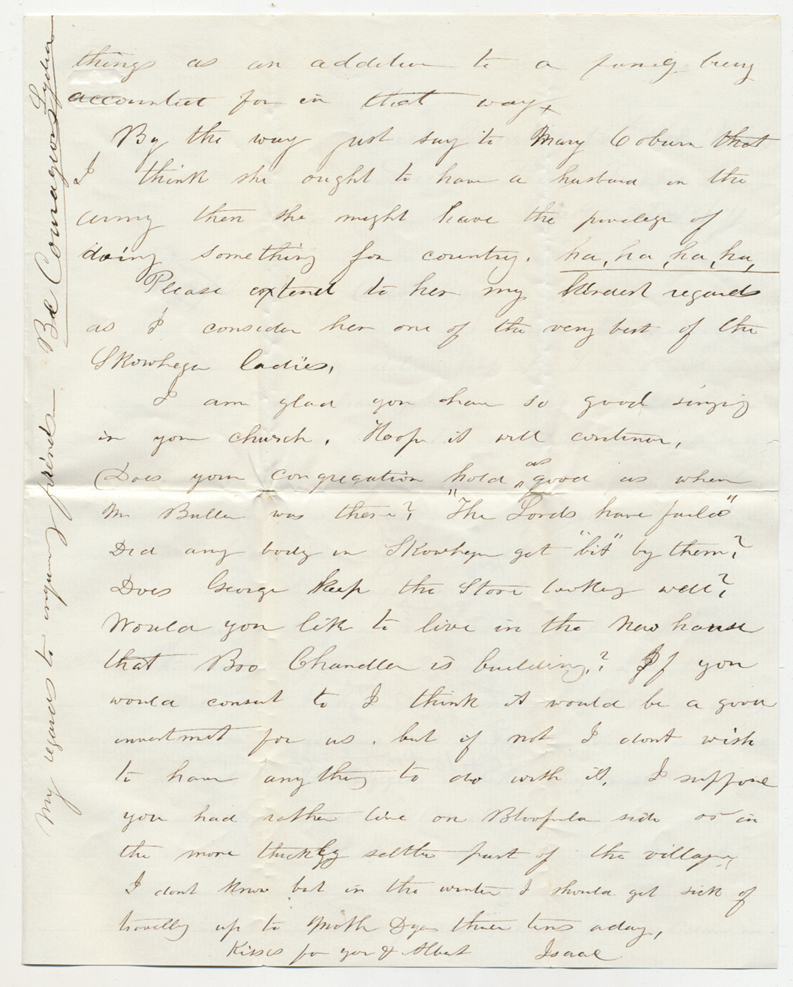 things as an addition to a family being
accounted for in that way,
By the way just say to Mary Coburn that
I think she ought to have a husband in the
army then she might have the privilege of
doing something for country. ha, ha, ha, ha,
Please extend to her my kindest regards
as I consider her one of the very best of the
Skowhegan ladies,
I am glad you have so good singing
in your church. Hope it will continue.
Does your congregation hold as good as when
Mr Butler was there? "The Lords have faild"
Did any body in Skowhegan get "bit" by them?
Does George keep the Store looking well?
Would you like to live in the new house
that Bro Chandler is building? If you
would consent to I think it would be a good
investment for us, but if not I dont wish
to have any thing to do with it, I suppose
you had rather live on side or in
the more thickly settled part of the village,
I dont know but in the winter I should get sick of
travelling up to three times a day,
Kisses for you & Albert Isaac
My regards to inquiring friends Be Courageous Lydia